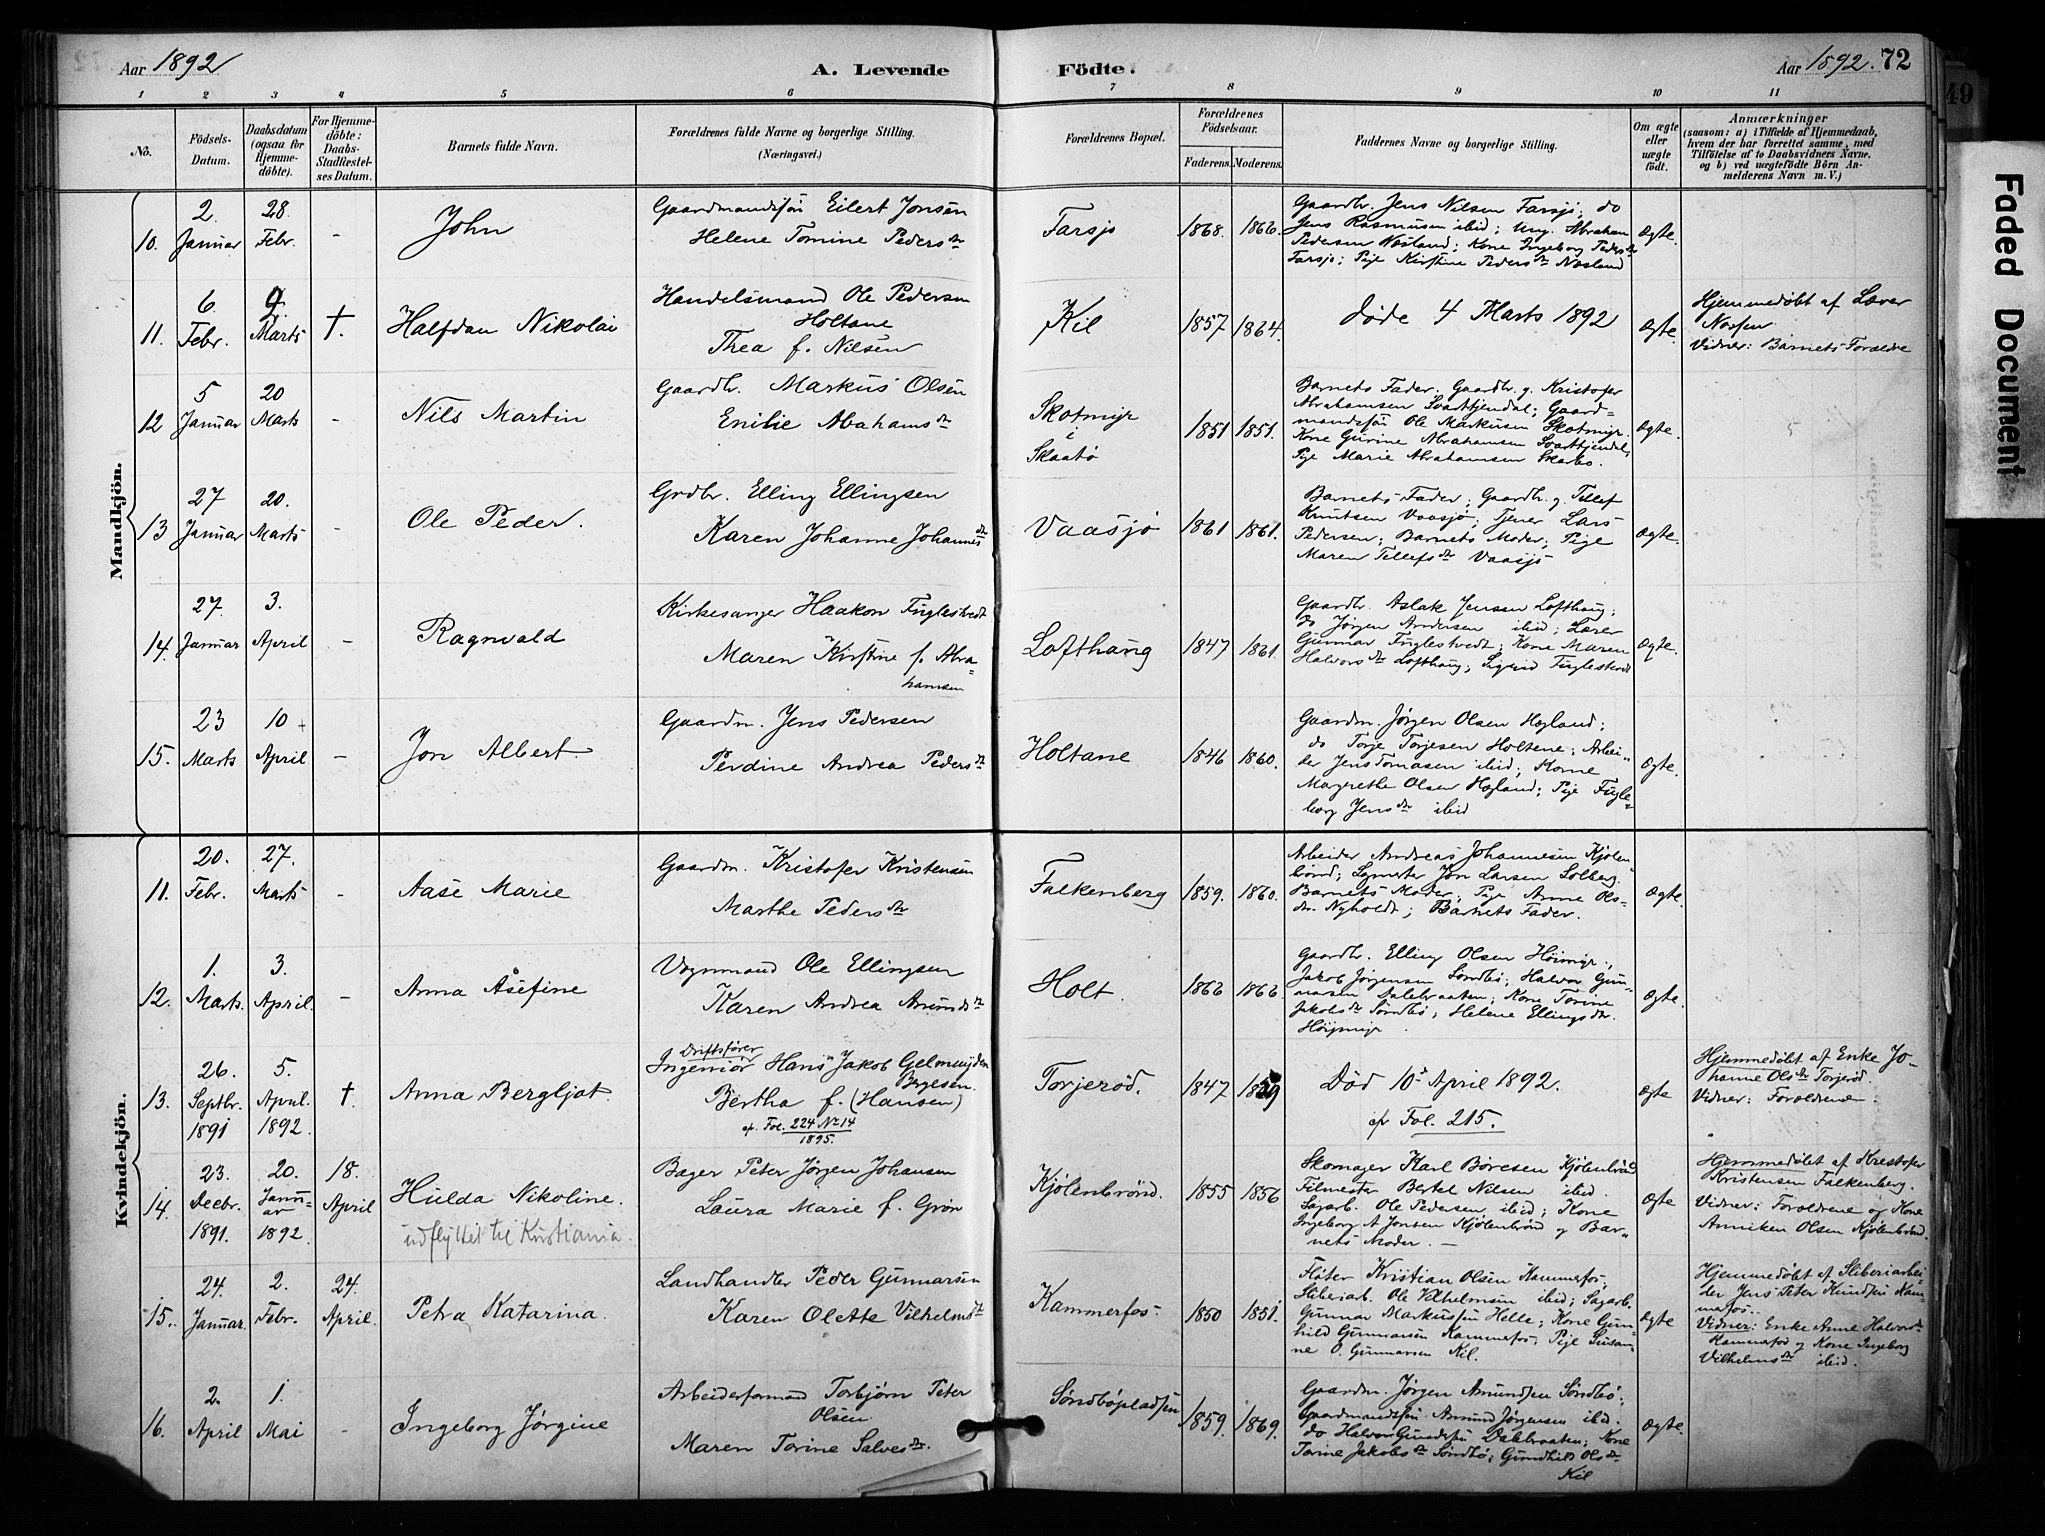 Aar 1892
A. Levende
Födte.
Aar 1892. 72
49
1 2 3 4 5 6 7 8 9 10 11
No.
Födsels-Datum.
Daabsdatum (ogsaa for Hjemmedöbte).
For Hjemmedöbte: Daabs-Stadfæstelses Datum.
Barnets fulde Navn.
Forældrenes fulde Navne og borgerlige Stilling.
(Næringsvei.)
Forældrenes Bopæl.
Forældrenes Födselsaar.
Faderens. Moderens.
Faddernes Navne og borgerlige Stilling.
Om ægte eller uægte födt.
Anmærkninger
(saasom: a) i Tilfælde af Hjemmedaab, hvem der har forrettet samme, med Tilföielse af to Daabsvidners Navne, og b) ved uægtefödte Börn Anmelderens Navn m. V.)
Mandkjön.
10. 2. Januar 28. Febr. - John
Gaardmandssøn Eilert Jonsen
Helene Tomine Pedersdtr
Farsjø 1868. 1866.
Gaardbr. Jens Nilsen Farsjø; do
Jens Rasmusen ibid; Ung. Abraham
Pedersen Næsland; Kone Ingeborg Pedersdtr
Farsjø; Pige Kirstine Pedersdtr Næsland
Ægte.
11. 6. Febr. 9. Marts †. Halfdan Nikolai
Handelsmand Ole Pedersen
Holtane
Thea f. Nilsen
Kil 1857 1864.
Døde 4 Marts 1892
Ægte.
Hjemmedøbt af Lærer
Vidner: Barnets Forældre
12 5 Januar 20 Marts - Nils Martin
Gaardbr. Markus Olsen
Emilie Abrahamsdtr
Skotmyr
i
Skaatø
1851 1851.
Barnets Fader. Gaardbr. g. Kristofer
Abrahamsen Svarttjendal; Gaard-
mandssøn Ole Markusen Skotmyr.
Kone Gurine Abrahamsen Svarttjendal;
Pige Marie Abrahamsen Skarbo.
Ægte.
13 27 Januar 20. Marts - Ole Peder.
Grdbr. Elling Ellingsen
Karen Johanne Johannesdtr
Vaasjø 1861 1861.
Barnets Fader; Gaardbr. g. Tellef
Knutsen Vaasjø; Tjener Lars
Pedersen; Barnets Moder; Pige
Maren Tellefsdtr Vaasjø
Ægte.
14. 27. Januar 3. April - Ragnvald
Kirkesanger Haakon Fuglestvedt
Maren Kirstine f. Abra-
hamsen
Lofthaug 1847 1861.
Gaardbr. Aslak Jensen Lofthaug;
do Jørgen Andersen ibid; Lærer
Gunnar Fuglestvedt; Kone Maren
Halvorsdtr Lofthaug; Sigrid Fuglestvedt
Ægte.
15. 23 Marts 10 April - Jon Albert
Gaardm. Jens Pedersen
Perdine Andrea Pedersdtr
Holtane 1846 1860.
Gaardm. Jørgen Olsen Hogland;
do Torje Torjesen Holtene; Arbei-
der Jens Tomasen ibid; Kone
Margrethe Olsen Hogland; Pige Fugle-
borg Jensdtr ibid
Ægte.
Kvindekjön.
11. 20. Febr. 27. Marts - Aase Marie
Gaardm. Kristofer Kristensen
Marthe Pedersdtr
Falkenberg 1859. 1860.
Arbeider Andreas Johannesen Kjølen-
brønd; Jon Larsen Solberg.
Barnets Moder; Pige Anne Ols-
dtr. Nyholdt; Barnets Fader.
Ægte.
12. 1. Marts. 3. April. - Anna Åsefine
Vognmand Ole Ellingsen
Karen Andrea Amundsdtr
Holt. 1862 1862.
Gaardbr. Elling Olsen Høimyr;
Jakob Jørgensen Søndbø; Halvor Gun-
narsen Dalebraaten; Kone Torine
Jakobsdtr Søndbø; Helene Ellingsdtr.
Høymyr.
Ægte.
13. 26. Septbr. 1891 5. April. 1892. †. Anna Bergljot
Driftsfører
Ingeniør Hans Jakob Gelmuyden
Børgesen.
Bertha f. (Hansen)
cfr. Fol. 224 No 14
1895.
Torjerød. 1847 1859
Død 10d April 1892.
cfr Fol. 215.
Ægte
Hjemmedøbt af Enke Jo-
hanne Olsdtr Torjerød.
Vidner: Forældrene.
14. 23. Decbr. 1891. 20. Januar 1892. 18. April Hulda Nikoline.
udflyttet til Kristiania.
Bager Peter Jørgen Johansen
Laura Marie f. Grøn
Kjølenbrønd. 1855 1856
Skomager Karl Børesen Kjølenbrønd
Filmester Bertel Nilsen ibid.
Sagarb. Ole Pedersen ibid; Kone
Ingeborg A Jonsen Kjølenbrønd og Bar-
nets Moder. -
Ægte
Hjemmedøbt af Kristofer
Kristensen Falkenberg.
Vidner: Forældrene og Kone
Anniken Olsen Kjølenbrønd.
15. 24. Januar. 2. Febr. 24. April. Petra Katarina.
Landhandler Peder Gunnarsen
Karen Olette Vilhelmsdtr
Kammerfos. 1850 1851.
Fløter Kristian Olsen Kammerfos;
Sliberiarb. Ole Vilhelmsen ibid; Sagarb.
Gunnar Markussen Helle; Kone Gun-
hild Gunnarsen Kammerfos; Pige Susan-
ne O. Gunnarsen Kil.
Ægte
Hjemmedøbt af Sliberiarbei-
der Jens Peter Knudsen Kam-
merfos.
Vidner: Enke Anne Halvorsdtr
Kammerfos og Kone Ingeborg
Vilhelmsdtr ibid.
16. 2. April 1. Mai - Ingeborg Jørgine
Arbeiderformand Torbjørn Peter
Olsen
Maren Torine Salvesdtr.
Søndbøpladsen 1859. 1869.
Gaardm. Jørgen Amundsen Søndbø;
Gaardmandssøn Amund Jørgensen ibid.
do Halvor Gundersen Dalebraaten; Kone
Torine Jakobsdtr Søndbø; Gundhild Olsdtr
Kil
Ægte.
Faded Document